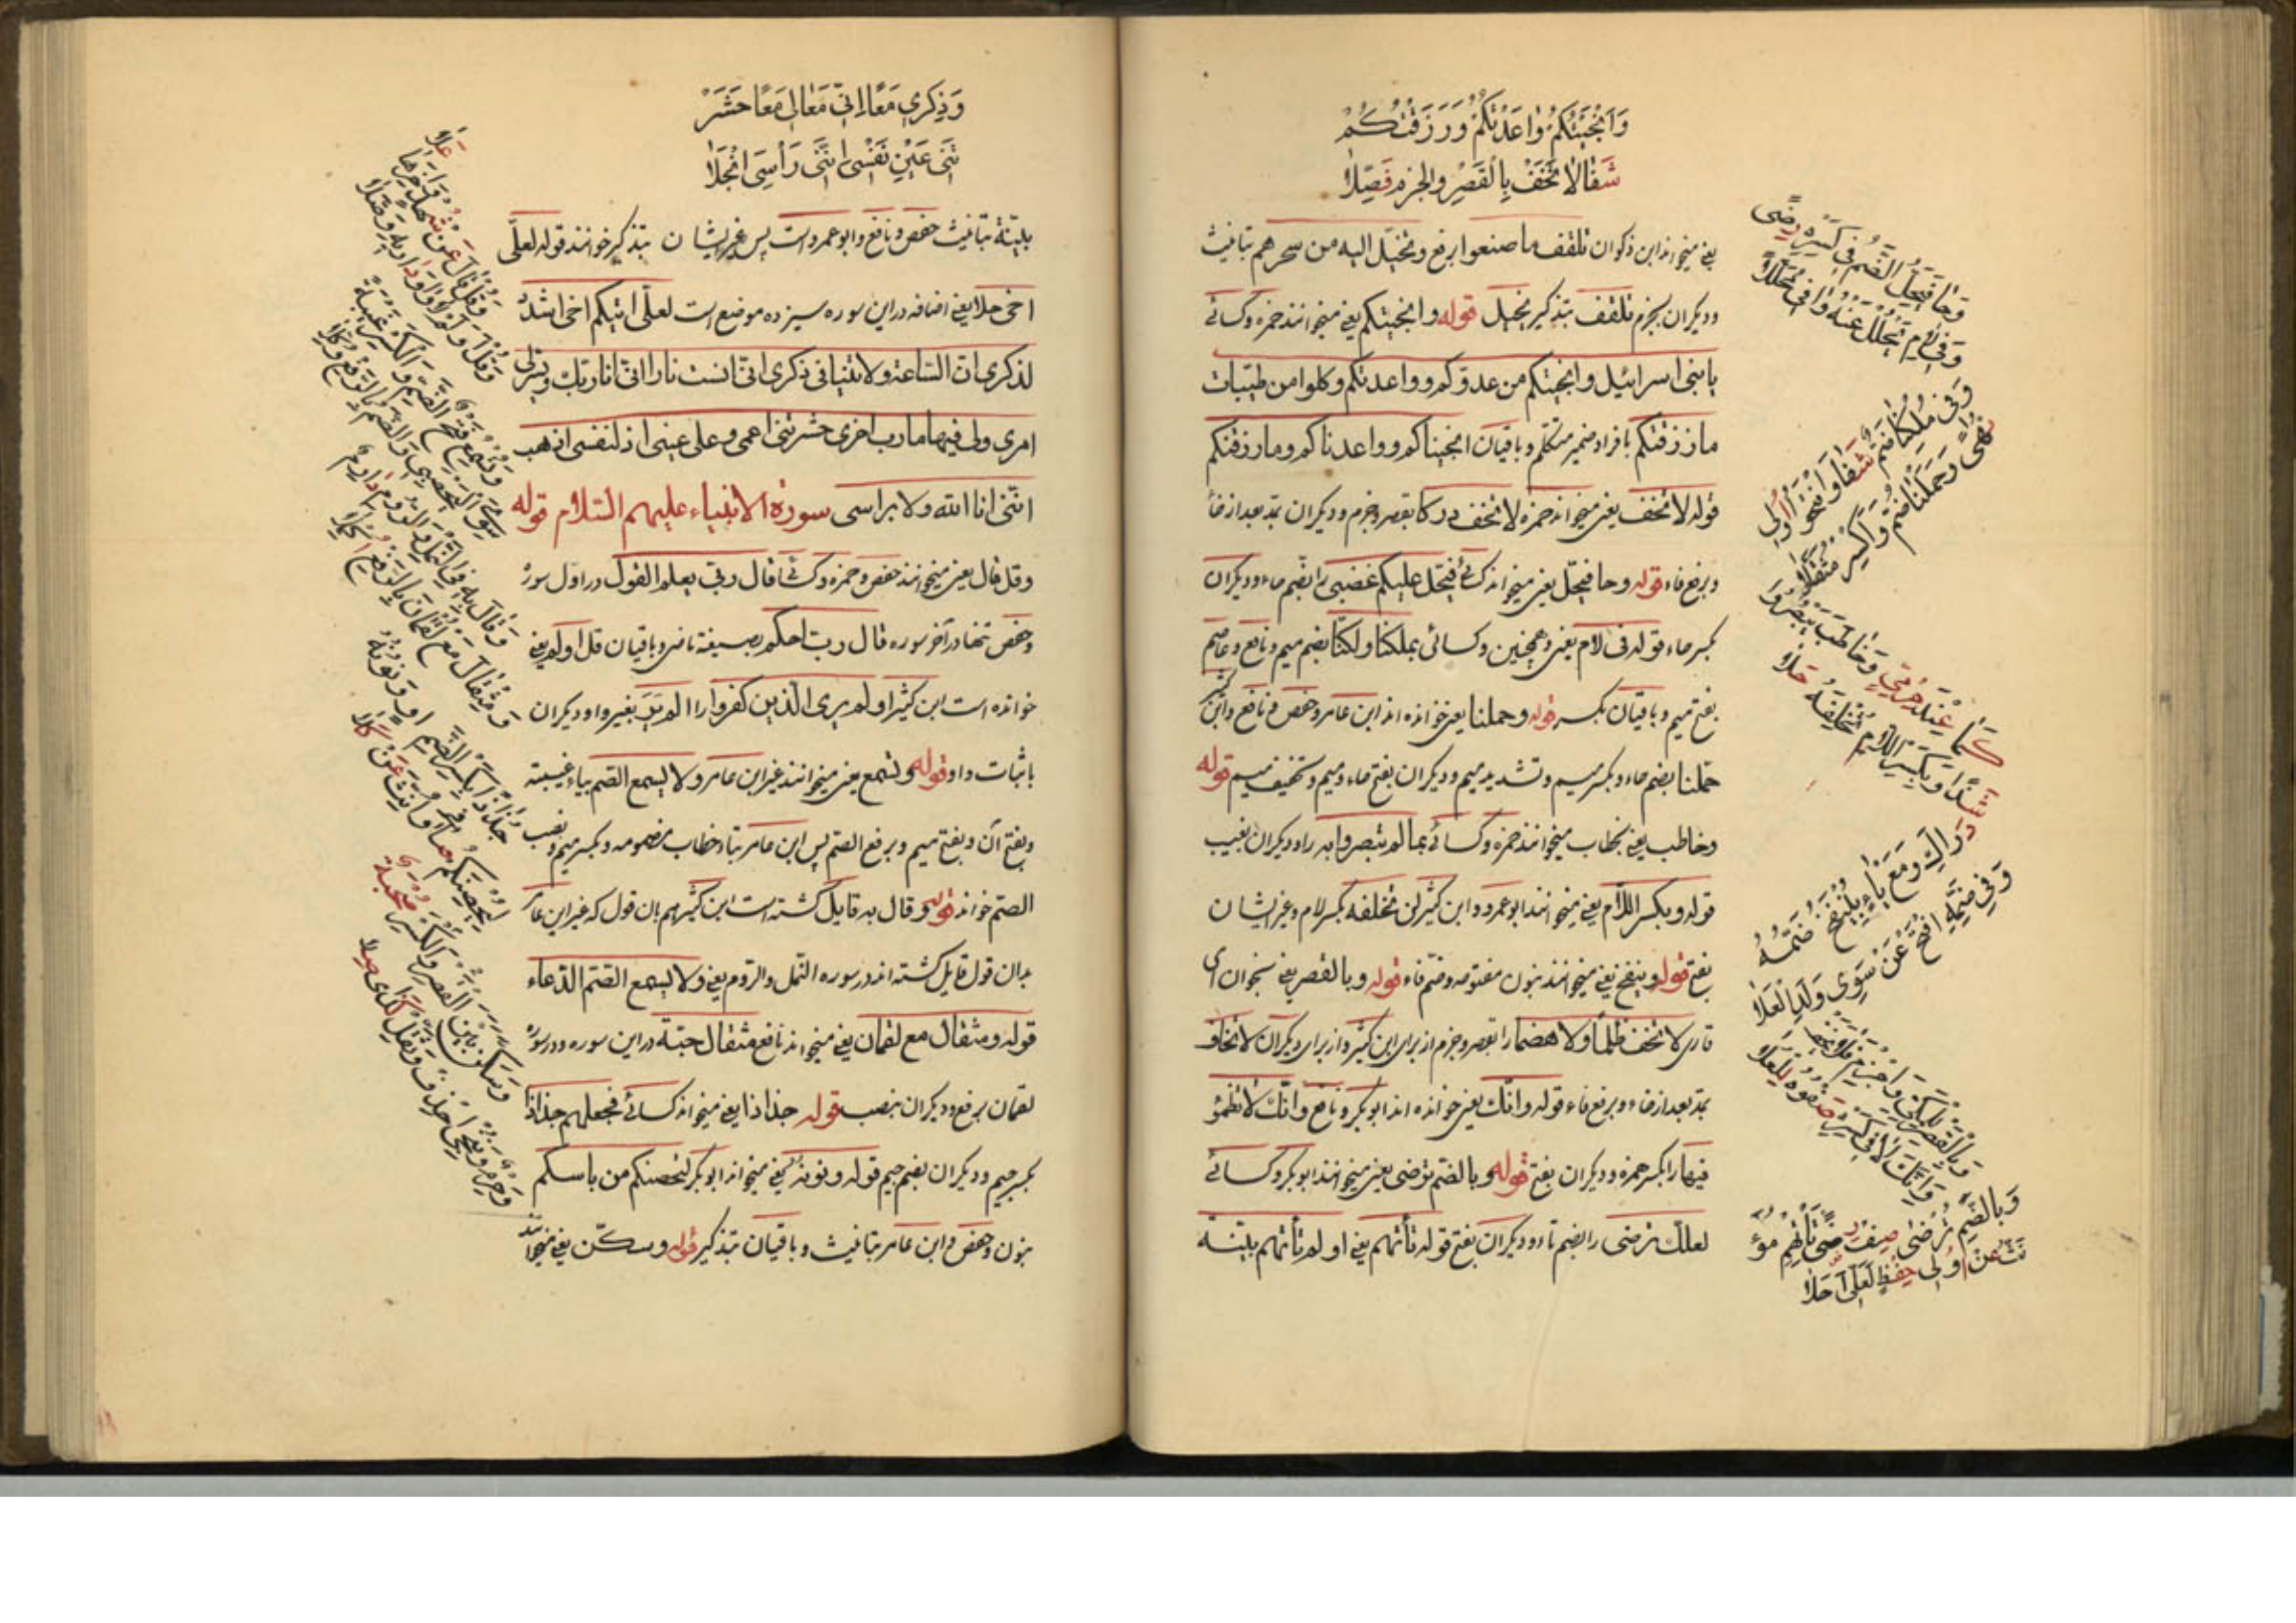 وَاَنْجَيْتُكُمْ وٰاعَدْتُكُمْ وَرَزَقْتُكُمْ
شَفٰا لاٰ تَخَفْ بِالْقَصْرِ والجزم فَصِّلاٰ
یعنی میخواند ابن ذکوان تلقف ما صنعوا برفع و تخیل الیه من سحرهم بتانیث
و دیکران بجزم تلقف بتذکیر یخیل قوله وانجیتکم یعنی میخوانند حمزه وکسائی
یا بنی اسرائیل وانجیتکم من عدوکم وواعدتکم وکلوا من طیبات
ما رزقتکم با فراد ضمیر متکلم و باقیان انجیناکم وواعدناکم وما رزقنکم
قوله لا تخف یعنی میخواند حمزه لا تخف درکا بقصر وجزم ودیکران بمد بعد از خا
وبرفع فاء قوله وحا فیحل یعنی میخواند کسائی فیحل علیکم غضبی را بضم حاء ودیکران
بکسر حاء قوله فی لام یعنی وهمچنین وکسائی بملکنا ولکنا بضم میم ونافع وعاصم
بفتح میم وباقیان بکسر قوله وحملنا یعنی خوانده اند ابن عامر وحفص ونافع وابن کثیر
حملنا بضم حاء وبکسر میم وتشدید میم ودیکران بفتح حاء ومیم وتخفیف میم قوله
وخاطب یعنی بخطاب میخوانند حمزه وکسائی بما لم تبصروا به را ودیکران بغیب
قوله وبکسر اللام یعنی میخوانند ابوعمرو وابن کثیر لن تخلفه بکسر لام وغیر ایشان
بفتح قوله وینفخ یعنی میخوانند بنون مفتوحه وضم فاء قوله وبالقصر یعنی بخوان ای
قاری لا تخف ظلما ولا هضما را بقصر وجزم از برای ابن کثیر واز برای دیکران لا تخاف
بمد بعد از خاء وبرفع فاء قوله وانک یعنی خوانده اند ابوبکر ونافع وانک لا تظمؤ
فیها را بکسر همزه ودیکران بفتح قوله وبالضم ترضی یعنی میخوانند ابوبکر وکسائی
لعلک ترضی را بضم تا ودیکران بفتح قوله تأتهم یعنی اولم تأتهم بینة
وَحٰا فَيَحِلَّ الضَّمُّ فِى كَسْرِهِ رِضًى
وَفِى لاٰمِ يَحْلُلْ عَنْهُ وٰافٰى مُحَلَّلاٰ
وَفِى مُلْكِنٰا ضَمٌّ شَفٰا وَافْتَحُوا اُولِى
نُهًى وَحَمَلْنٰا ضُمَّ وَاكْسِرْ مُثَقِّلاٰ
كَمٰا عِنْدَ حِرْمِيٍّ وَخٰاطَبَ يَبْصُرُوا
شَذًا وَبِكَسْرِ اللّاٰمِ تُخْلِفَهُ حَلاٰ
دَرٰاكِ وَمَعْ يٰاءٍ بِنَنْفُخُ ضَمُّهُ
وَفِى ضَمِّهِ افْتَحْ عَنْ سِوٰى وَلَدِ الْعَلاٰ
وَبِالْقَصْرِ لِلْمَكِّىِّ وَاجْزِمْ فَلاٰ يَخَفْ
وَاَنَّكَ لاٰ فِى كَسْرِهِ صَفْوَةُ الْعُلاٰ
وَبِالضَّمِّ تُرْضٰى صِفْ رِضًى تَأْتِهِمْ مُؤَ
نَّثٌ عَنْ اُولِى حِفْظٍ لَعَلِّى اَخِى حَلاٰ
وَذِكْرِى مَعًا اِنّى مَعًا لِى مَعًا حَشَرْ
تَنِى عَيْنِ نَفْسِى اِنَّنِى رَأْسِىَ انْجَلاٰ
بینة بتانیث حفص ونافع وابوعمرو است پس غیر ایشان بتذکیر خوانند قوله لعلی
اخی حلا یعنی اضافه در این سوره سیزده موضع است لعلی اتیکم اخی اشدد
لذکری ان الساعة ولا تنیا فی ذکری انی انست نارا انی انا ربک ویسر لی
امری ولی فیها مارب اخری حشرتنی اعمی وعلی عینی اذ لنفسی اذهب
اننی انا الله ولا براسی سورة الانبیاء علیهم السلام قوله
وقل قال یعنی میخوانند حفص وحمزه وکسائی قال ربی یعلم القول در اول سوره
وحفص تنها در آخر سوره قال رب احکم بصیغه ماضی وباقیان قل اولم یعنی
خوانده است ابن کثیر اولم یری الذین کفروا را الم یر بغیر واو ودیکران
باثبات واو قوله وتسمع یعنی میخوانند غیر ابن عامر ولا یسمع الصم بیاء غیبته
وبفتح آن وبفتح میم وبرفع الصم پس ابن عامر بتاء خطاب مضمومه وبکسر میم ونصب
الصم خواند قوله وقال به قایل کشته است ابن کثیر هم بان قول که غیر ابن عامر
بدان قول قایل کشته اند در سوره النمل والروم یعنی ولا یسمع الصم الدعاء
قوله ومثقال مع لقمان یعنی میخواند نافع مثقال حبة در این سوره ودر سوره
لقمان برفع ودیکران بنصب قوله جذاذا یعنی میخواند کسائی فجعلهم جذاذا
بکسر جیم ودیکران بضم جیم قوله ونونه یعنی میخواند ابوبکر لنحصنکم من باسکم
بنون وحفص وابن عامر بتانیث وباقیان بتذکیر قوله وسکن یعنی میخوانند
وَقُلْ قٰالَ عَنْ شُهْدٍ وَاٰخِرُهٰا عَلاٰ
وَقُلْ اَوَلَمْ لاٰ وٰاوَ دٰارِيهِ وَصَّلاٰ
وَتُسْمِعُ فَتْحُ الضَّمِّ وَالْكَسْرِ غَيْبَةً
سِوَى الْيَحْصَبِى وَالصُّمَّ بِالرَّفْعِ وُكِّلاٰ
وَقٰالَ بِهِ فِى النَّمْلِ وَالرُّومِ دٰارِمٌ
وَمِثْقٰالَ مَعْ لُقْمٰانَ بِالرَّفْعِ اُكْمِلاٰ
جُذٰاذًا بِكَسْرِ الضَّمِّ رٰاوٍ وَنُونُهُ
لِيُحْصِنَكُمْ صٰافٰى وَاُنِّثَ عَنْ كِلاٰ
وَسَكَّنَ بَيْنَ الْكَسْرِ وَالْقَصْرِ صُحْبَةٌ
وَحِرْمٌ وَنُنْجِى احْذِفْ وَثَقِّلْ كَذِى صِلاٰ